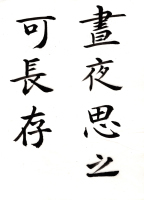 晝夜思之
可長存